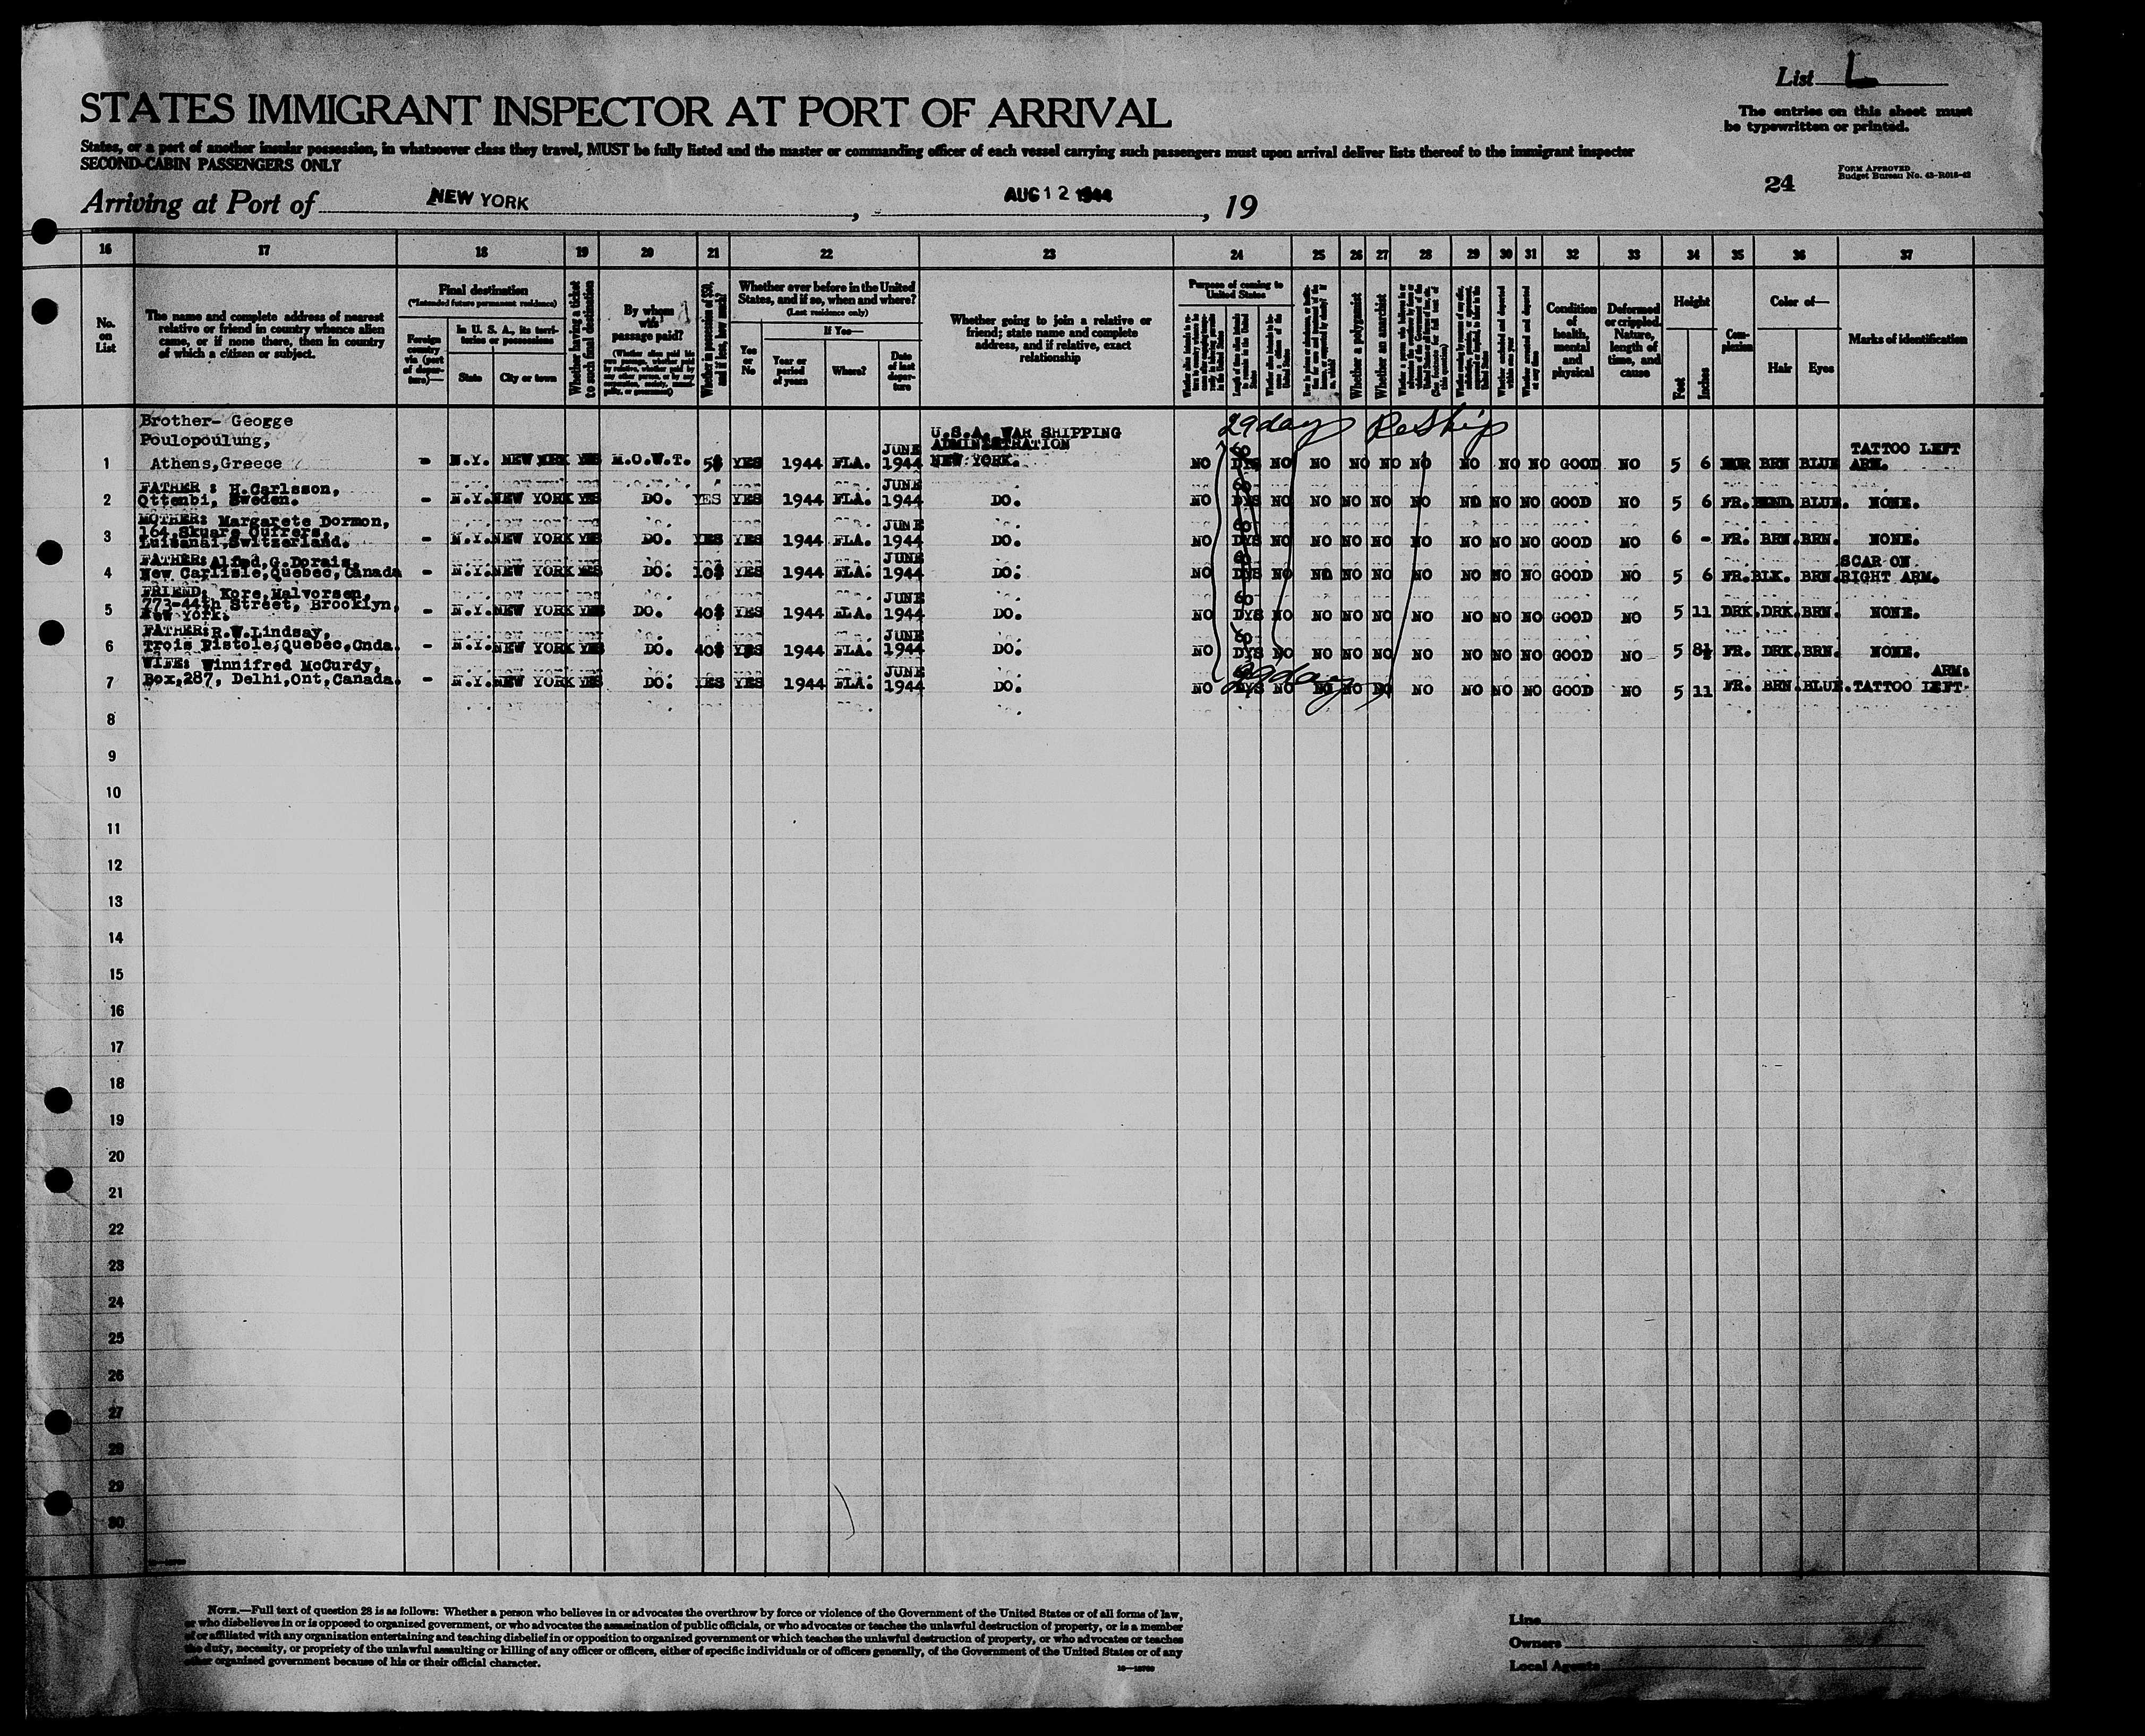 List L
The entries on this sheet must
be typewritten or printed.
STATES IMMIGRANT INSPECTOR AT PORT OF ARRIVAL
States, or a port of another insular possession, in whatsoever class they travel, MUST be fully listed and the master or commanding officer of each vessel carrying such passengers must upon arrival deliver lists thereof to the immigrant inspector
SECOND-CABIN PASSENGERS ONLY
FORM APPROVED
Budget Bureau No. 43-R018-42
24
Arriving at Port of NEW YORK, AUG 12 1944, 19
16 17 18 19 20 21 22 23 24 25 26 27 28 29 30 31 32 33 34 35 36 37
No. on List
The name and complete address of nearest
relative or friend in country whence alien
came, or if none there, then in country
of which a citizen or subject.
Final destination
(*Intended future permanent residence)
Foreign country via (port of departure)—
In U. S. A., its territories or possessions
State
City or town
Whether having a ticket to such final destination
By whom was passage paid?
Whether in possession of $50, and if less, how much?
Whether ever before in the United
States, and if so, when and where?
(Last residence only)
Yes or No
If Yes—
Year or period of years
Where?
Date of last departure
Whether going to join a relative or
friend; state name and complete
address, and if relative, exact
relationship
Purpose of coming to United States
Whether a polygamist
Whether an anarchist
Condition of health, mental and physical
Deformed or crippled. Nature, length of time, and cause
Height
Feet
Inches
Complexion
Color of—
Hair
Eyes
Marks of identification
29 days Reship
Brother- Geogge
Poulopoulung,
1 Athens,Greece - N.Y. NEW YORK YES M.O.W.T. 5$ YES 1944 FLA. JUNE 1944 U.S.A. WAR SHIPPING ADMINISTRATION NEW YORK. NO 60 DYS NO NO NO NO NO NO NO NO GOOD NO 5 6 BRN BLUE TATTOO LEFT ARM.
FATHER : H.Carlsson,
2 Ottenbi, Sweden. - N.Y. NEW YORK YES DO. YES YES 1944 FLA. JUNE 1944 DO. NO 60 DYS NO NO NO NO NO NO NO NO GOOD NO 5 6 FR. BLND. BLUE. NONE.
MOTHER: Margarete Dormon,
164,Skuare Ouffers,
3 Luisanai,Switzerland. - N.Y. NEW YORK YES DO. YES YES 1944 FLA. JUNE 1944 DO. NO 60 DYS NO NO NO NO NO NO NO NO GOOD NO 6 - FR. BRN. BRN. NONE.
FATHER: Alfed,G.Dorais,
4 New Carlisle,Quebec,Canada - N.Y. NEW YORK YES DO. 10$ YES 1944 FLA. JUNE 1944 DO. NO 60 DYS NO NO NO NO NO NO NO NO GOOD NO 5 6 FR. BLK. BRN. SCAR ON RIGHT ARM.
FRIEND: Kore,Malvorsen,
773-44th Street, Brooklyn,
5 New York. - N.Y. NEW YORK YES DO. 40$ YES 1944 FLA. JUNE 1944 DO. NO 60 DYS NO NO NO NO NO NO NO NO GOOD NO 5 11 DRK. DRK. BRN. NONE.
FATHER:R.W.Lindsay,
6 Trois Pistole,Quebec,Cnda. - N.Y. NEW YORK YES DO. 40$ YES 1944 FLA. JUNE 1944 DO. NO 60 DYS NO NO NO NO NO NO NO NO GOOD NO 5 8½ FR. DRK. BRN. NONE.
WIFE: Winnifred McCurdy,
7 Box,287, Delhi,Ont,Canada. - N.Y. NEW YORK YES DO. YES YES 1944 FLA. JUNE 1944 DO. NO DYS NO NO NO NO NO NO NO NO GOOD NO 5 11 FR. BRN. BLUE. TATTOO LEFT ARM.
29 days
8
9
10
11
12
13
14
15
16
17
18
19
20
21
22
23
24
25
26
27
28
29
30
NOTE.—Full text of question 28 is as follows: Whether a person who believes in or advocates the overthrow by force or violence of the Government of the United States or of all forms of law,
or who disbelieves in or is opposed to organized government, or who advocates the assassination of public officials, or who advocates or teaches the unlawful destruction of property, or is a member
of or affiliated with any organization entertaining and teaching disbelief in or opposition to organized government or which teaches the unlawful destruction of property, or who advocates or teaches
the duty, necessity, or propriety of the unlawful assaulting or killing of any officer or officers, either of specific individuals or of officers generally, of the Government of the United States or of any
other organized government because of his or their official character.
Line
Owners
Local Agents